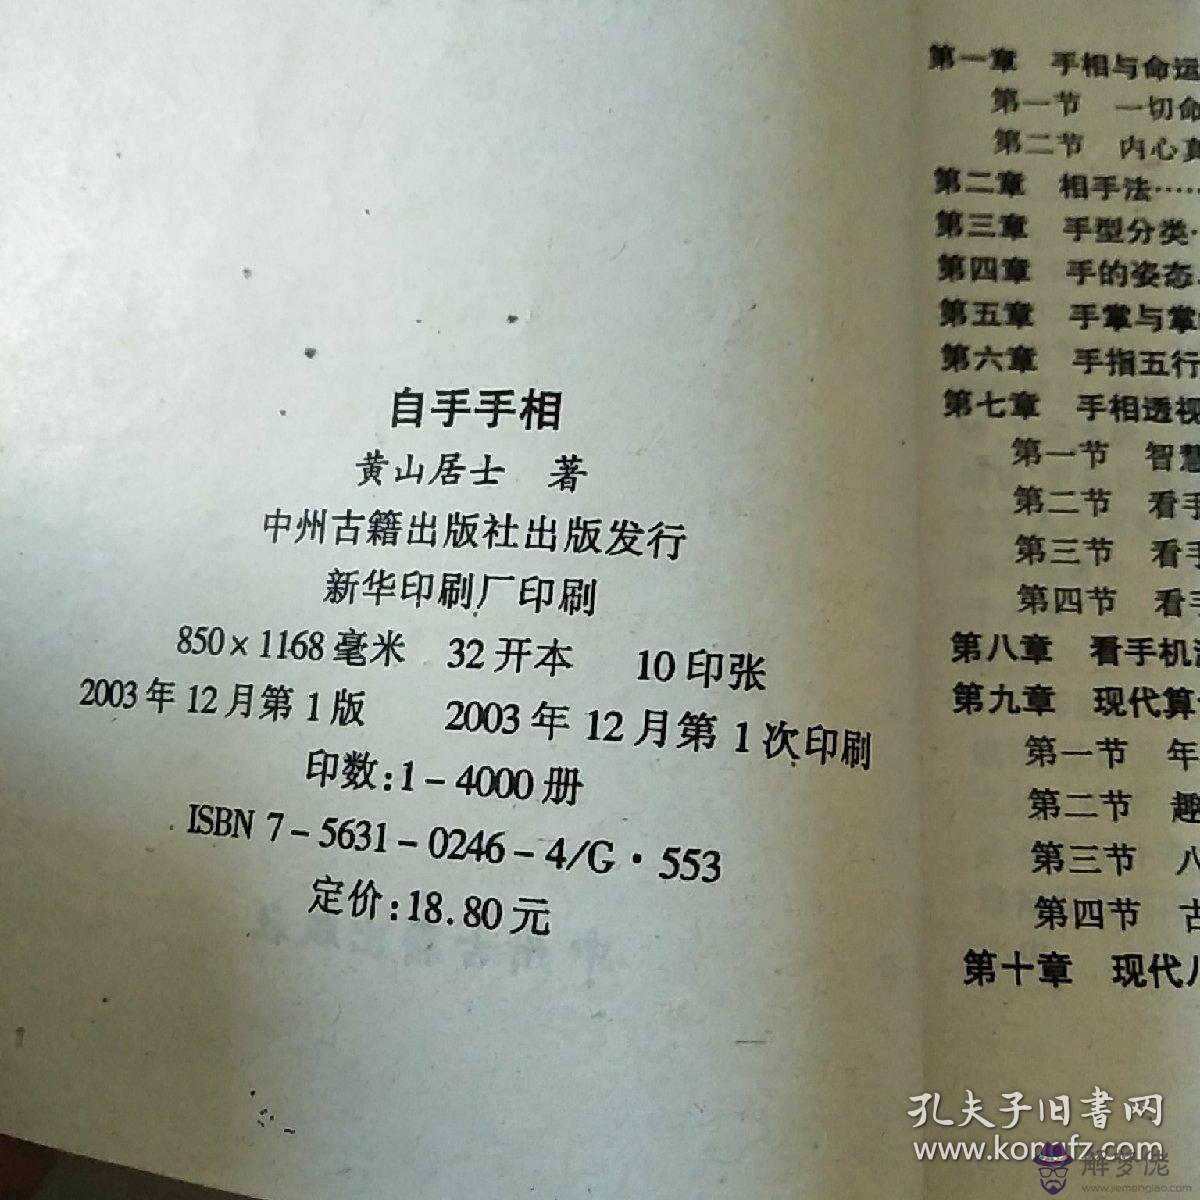 自手手相
黄山居士 著
中州古籍出版社出版发行
新华印刷厂印刷
850×1168毫米 32开本 10印张
2003年12月第1版 2003年12月第1次印刷
印数:1-4000册
ISBN 7-5631-0246-4/G·553
定价:18.80元
第一章 手相与命运
第一节 一切命
第二节 内心真
第二章 相手法……
第三章 手型分类·
第四章 手的姿态
第五章 手掌与掌
第六章 手指五行
第七章 手相透视
第一节 智慧
第二节 看手
第三节 看手
第四节 看手
第八章 看手机
第九章 现代算
第一节 年
第二节 趣
第三节 八
第四节 古
第十章 现代八
孔夫子旧书网
www.kongfz.com
解梦佬
www.jiemenglao.com